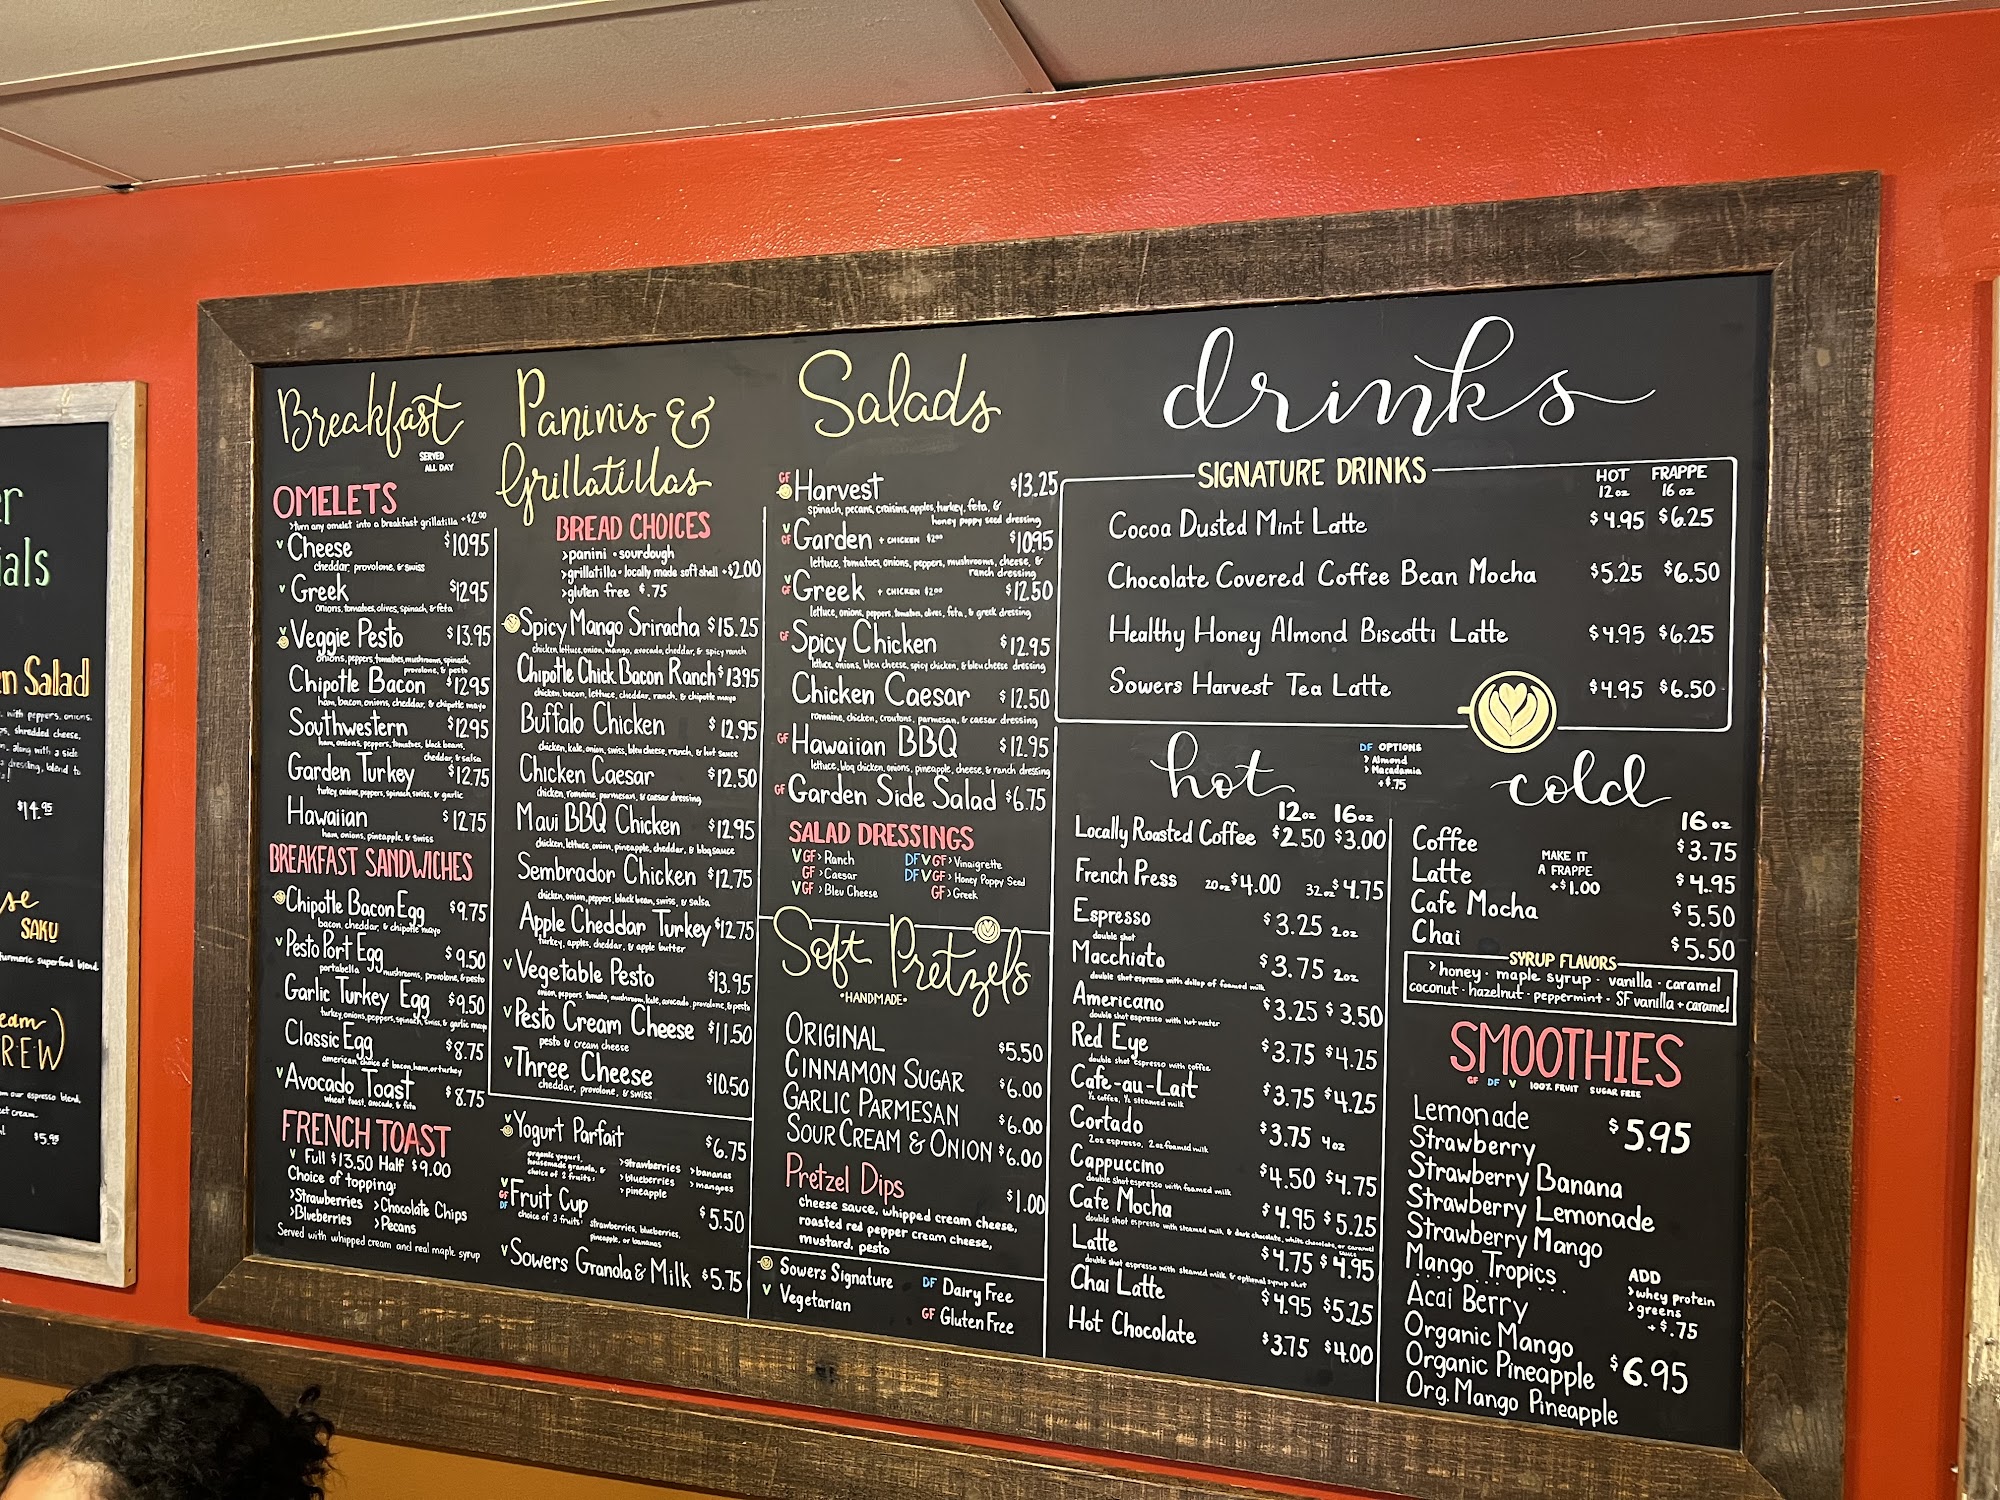 er
ials
en Salad
with peppers, onions,
shredded cheese,
along with a side
dressing, blend to
$14.95
se
SAKU
turmeric superfood blend
eam
REW)
our espresso blend,
cream.
$5.95
Breakfast
SERVED
ALL DAY
OMELETS
>turn any omelet into a breakfast grillatilla +$2.00
V Cheese $10.95
cheddar, provolone, & swiss
V Greek $12.95
onions, tomatoes, olives, spinach, & feta
V Veggie Pesto $13.95
onions, peppers, tomatoes, mushrooms, spinach,
provolone, & pesto
Chipotle Bacon $12.95
ham, bacon, onions, cheddar, & chipotle mayo
Southwestern $12.95
ham, onions, peppers, tomatoes, black beans,
cheddar, & salsa
Garden Turkey $12.75
turkey, onions, peppers, spinach, swiss, & garlic
Hawaiian $12.75
ham, onions, pineapple, & swiss
BREAKFAST SANDWICHES
Chipotle Bacon Egg $9.75
bacon, cheddar, & chipotle mayo
V Pesto Port Egg $9.50
portabella mushrooms, provolone, & pesto
Garlic Turkey Egg $9.50
turkey, onions, peppers, spinach, swiss, & garlic mayo
Classic Egg $8.75
american, choice of bacon, ham, or turkey
V Avocado Toast $8.75
wheat toast, avocado, & feta
FRENCH TOAST
V Full $13.50 Half $9.00
Choice of topping:
>Strawberries >Chocolate Chips
>Blueberries >Pecans
Served with whipped cream and real maple syrup
Paninis &
Grillatillas
BREAD CHOICES
>panini • sourdough
>grillatilla • locally made soft shell +$2.00
>gluten free $.75
Spicy Mango Sriracha $15.25
chicken, lettuce, onion, mango, avocado, cheddar, & spicy ranch
Chipotle Chick Bacon Ranch $13.95
chicken, bacon, lettuce, cheddar, ranch, & chipotle mayo
Buffalo Chicken $12.95
chicken, kale, onion, swiss, bleu cheese, ranch, & hot sauce
Chicken Caesar $12.50
chicken, romaine, parmesan, & caesar dressing
Maui BBQ Chicken $12.95
chicken, lettuce, onion, pineapple, cheddar, & bbq sauce
Sembrador Chicken $12.75
chicken, onion, peppers, black bean, swiss, & salsa
Apple Cheddar Turkey $12.75
turkey, apples, cheddar, & apple butter
V Vegetable Pesto $13.95
onion, peppers, tomato, mushroom, kale, avocado, provolone, & pesto
V Pesto Cream Cheese $11.50
pesto & cream cheese
V Three Cheese $10.50
cheddar, provolone, & swiss
V Yogurt Parfait $6.75
organic yogurt,
housemade granola, &
choice of 3 fruits:
>strawberries >bananas
>blueberries >mangoes
>pineapple
V GF DF Fruit Cup $5.50
choice of 3 fruits: strawberries, blueberries,
pineapple, or bananas
V Sowers Granola & Milk $5.75
Salads
GF Harvest $13.25
spinach, pecans, craisins, apples, turkey, feta, &
honey poppy seed dressing
V GF Garden + CHICKEN $2.00 $10.95
lettuce, tomatoes, onions, peppers, mushrooms, cheese, &
ranch dressing
V GF Greek + CHICKEN $2.00 $12.50
lettuce, onions, peppers, tomatoes, olives, feta, & greek dressing
GF Spicy Chicken $12.95
lettuce, onions, bleu cheese, spicy chicken, & bleu cheese dressing
Chicken Caesar $12.50
romaine, chicken, croutons, parmesan, & caesar dressing
GF Hawaiian BBQ $12.95
lettuce, bbq chicken, onions, pineapple, cheese, & ranch dressing
GF Garden Side Salad $6.75
SALAD DRESSINGS
V GF > Ranch DF V GF > Vinaigrette
GF > Caesar DF V GF > Honey Poppy Seed
V GF > Bleu Cheese GF > Greek
Soft Pretzels
•HANDMADE•
ORIGINAL $5.50
CINNAMON SUGAR $6.00
GARLIC PARMESAN $6.00
SOUR CREAM & ONION $6.00
Pretzel Dips $1.00
cheese sauce, whipped cream cheese,
roasted red pepper cream cheese,
mustard, pesto
Sowers Signature DF Dairy Free
V Vegetarian GF Gluten Free
drinks
SIGNATURE DRINKS
HOT FRAPPE
12 oz 16 oz
Cocoa Dusted Mint Latte $4.95 $6.25
Chocolate Covered Coffee Bean Mocha $5.25 $6.50
Healthy Honey Almond Biscotti Latte $4.95 $6.25
Sowers Harvest Tea Latte $4.95 $6.50
hot
DF OPTIONS
> Almond
> Macadamia
+$.75
12oz 16oz
Locally Roasted Coffee $2.50 $3.00
French Press 20oz $4.00 32oz $4.75
Espresso $3.25 2oz
double shot
Macchiato $3.75 2oz
double shot espresso with dollop of foamed milk
Americano $3.25 $3.50
double shot espresso with hot water
Red Eye $3.75 $4.25
double shot espresso with coffee
Cafe-au-Lait $3.75 $4.25
½ coffee, ½ steamed milk
Cortado $3.75 4oz
2oz espresso, 2oz foamed milk
Cappuccino $4.50 $4.75
double shot espresso with foamed milk
Cafe Mocha $4.95 $5.25
double shot espresso with steamed milk & dark chocolate, white chocolate, or caramel
sauce
Latte $4.75 $4.95
double shot espresso with steamed milk & optional syrup shot
Chai Latte $4.95 $5.25
Hot Chocolate $3.75 $4.00
cold
16 oz
Coffee $3.75
Latte $4.95
Cafe Mocha $5.50
Chai $5.50
MAKE IT
A FRAPPE
+$1.00
SYRUP FLAVORS
> honey • maple syrup • vanilla • caramel
coconut • hazelnut • peppermint • SF vanilla + caramel
SMOOTHIES
GF DF V 100% FRUIT SUGAR FREE
Lemonade $5.95
Strawberry
Strawberry Banana
Strawberry Lemonade
Strawberry Mango
Mango Tropics
Acai Berry
Organic Mango
Organic Pineapple $6.95
Org. Mango Pineapple
ADD
>whey protein
>greens
+$.75